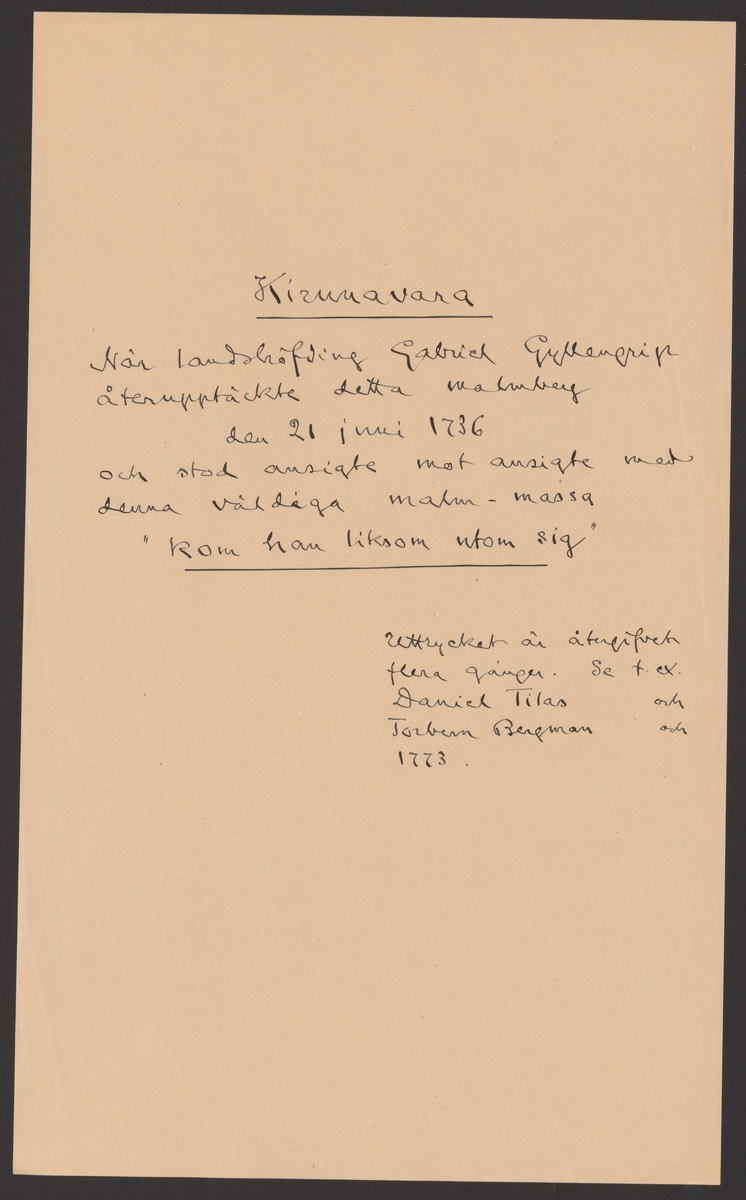 Kirunavara
När landshöfding Gabriel Gyllengrip
återupptäckte detta malmberg
den 21 juni 1736
och stod ansigte mot ansigte med
denna väldiga malm-massa
"kom han liksom utom sig"
Uttrycket är återgifvet
flera gånger. Se t. ex.
Daniel Tilas och
Torbern Bergman och
1773.